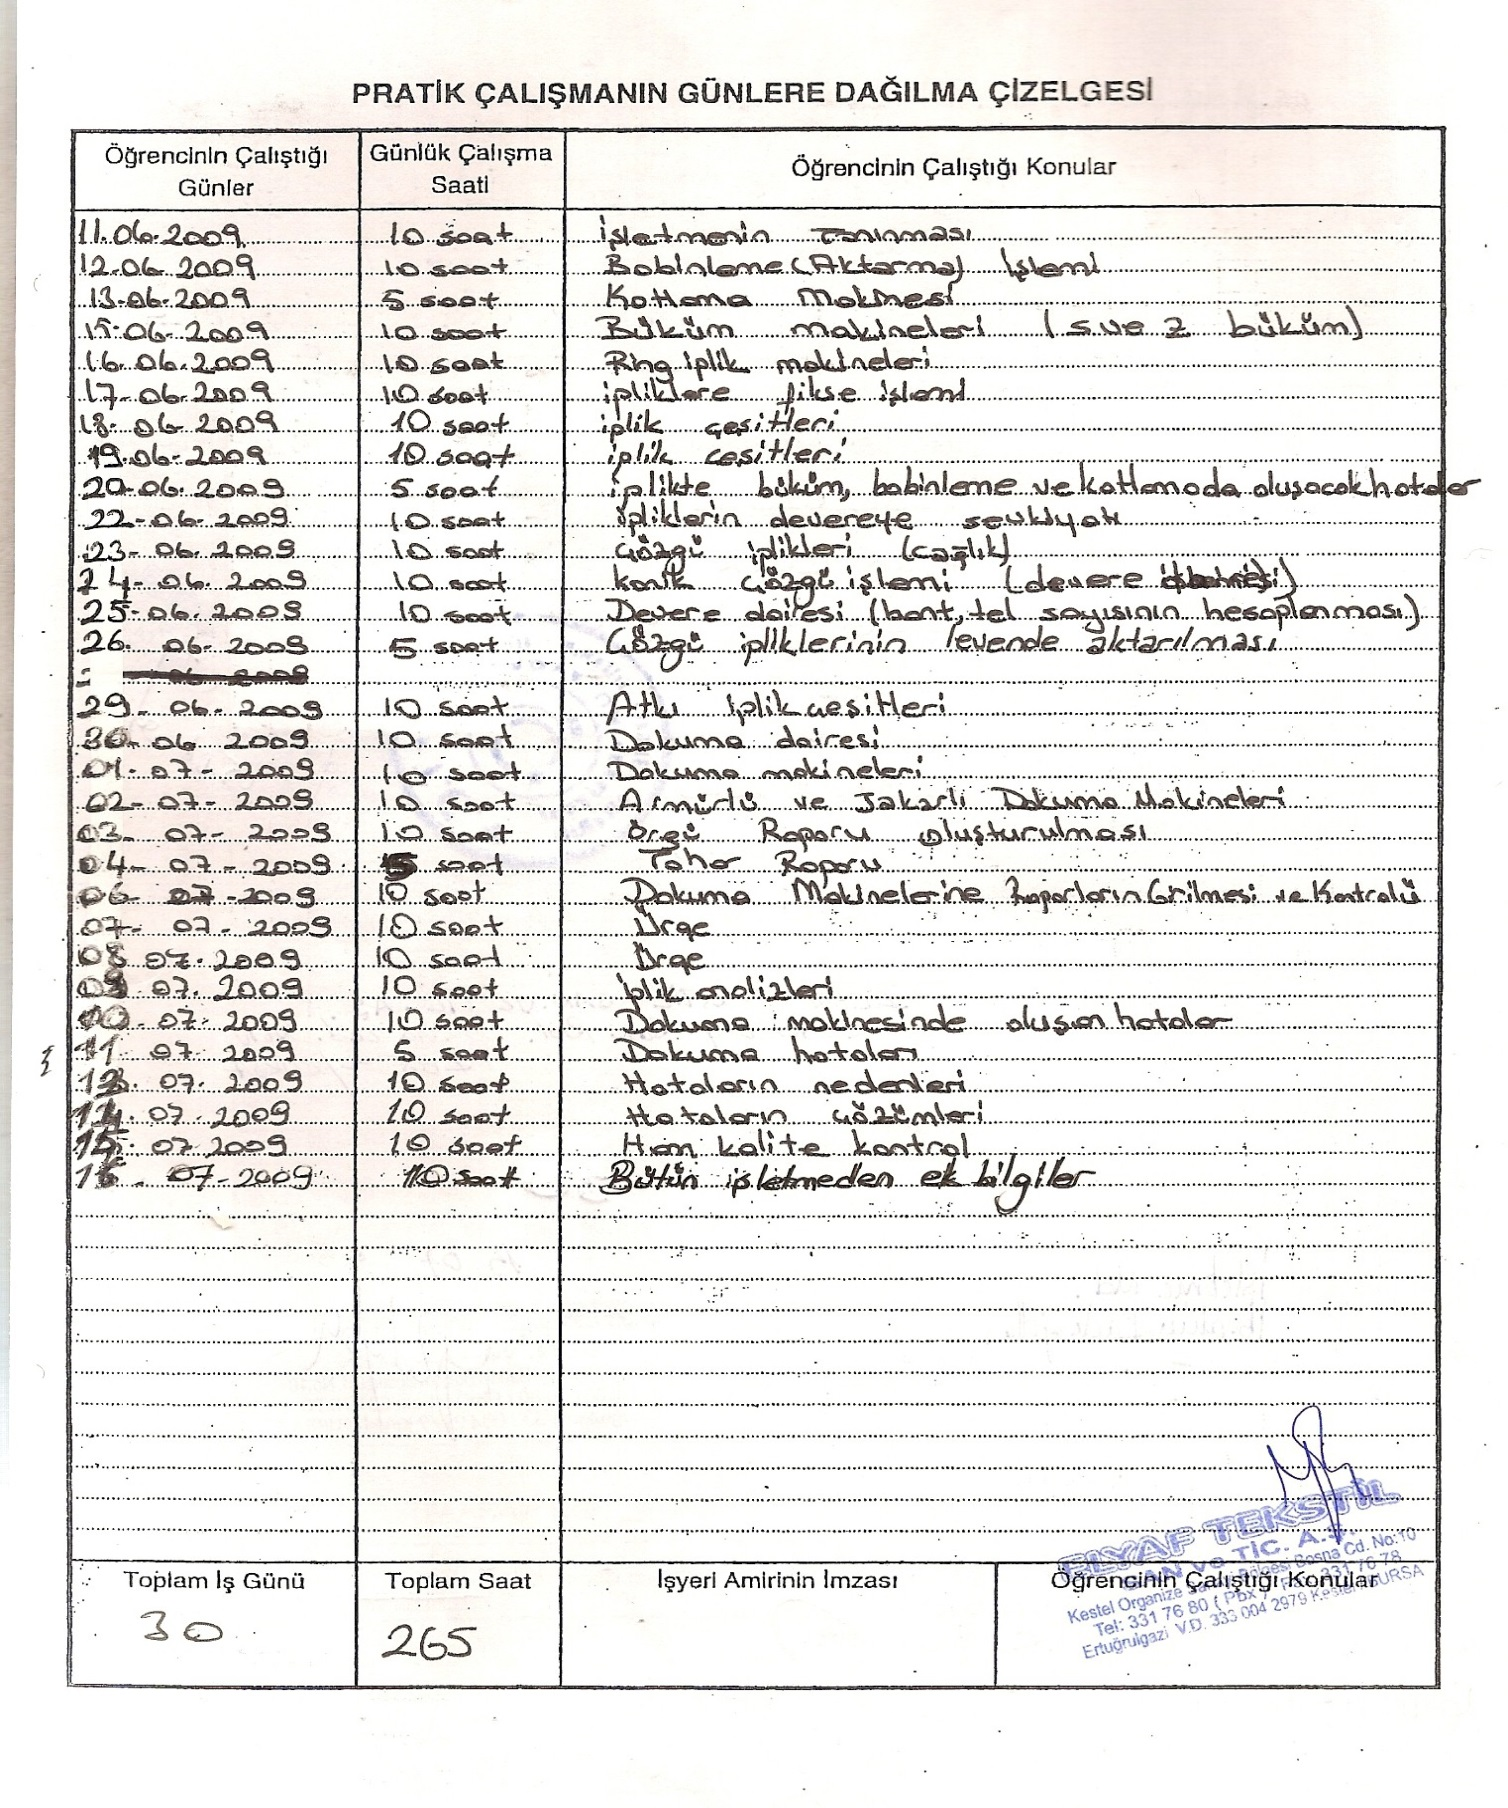 PRATİK ÇALIŞMANIN GÜNLERE DAĞILMA ÇİZELGESİ
Öğrencinin Çalıştığı Günler Günlük Çalışma Saati Öğrencinin Çalıştığı Konular
11.06.2009 10 saat İşletmenin tanınması
12.06.2009 10 saat Bobinleme (Aktarma) İşlemi
13.06.2009 5 saat Katlama Makinesi
15.06.2009 10 saat Büküm makineleri (s ve z büküm)
16.06.2009 10 saat Ring iplik makineleri
17.06.2009 10 saat ipliklere fikse işlemi
18.06.2009 10 saat iplik çeşitleri
19.06.2009 10 saat iplik çeşitleri
20.06.2009 5 saat iplikte büküm, bobinleme ve katlamada oluşacak hatalar
22-06-2009 10 saat ipliklerin devereye sevkiyatı
23-06.2009 10 saat Çözgü iplikleri (cağlık)
24-06.2009 10 saat konik çözgü işlemi (devere
25-06.2009 10 saat Devere dairesi (bant, tel sayısının hesaplanması)
26.06.2009 5 saat Çözgü ipliklerinin levende aktarılması
29-06-2009 10 saat Atkı iplik çeşitleri
30.06 2009 10 saat Dokuma dairesi
01.07-2009 10 saat Dokuma makineleri
02-07-2009 10 saat Armürlü ve Jakarlı Dokuma Makineleri
03-07-2009 10 saat Örgü Raporu oluşturulması
04-07-2009 5 saat Tahar Raporu
06-07-2009 10 saat Dokuma Makinelerine Raporların Girilmesi ve Kontrolü
07-07-2009 10 saat Ürge
08 07.2009 10 saat Ürge
09 07.2009 10 saat iplik analizleri
10.07.2009 10 saat Dokuma makinesinde oluşan hatalar
11 07.2009 5 saat Dokuma hataları
13.07.2009 10 saat Hataların nedenleri
14.07.2009 10 saat Hataların çözümleri
15.07.2009 10 saat Ham kalite kontrol
16.07-2009 10 saat Bütün işletmeden ek bilgiler
ELYAF TEKSTİL
SAN ve TİC. A.Ş.
Toplam İş Günü Toplam Saat İşyeri Amirinin İmzası Öğrencinin Çalıştığı Konular
Kestel Organize Sanayi Bölgesi Bosna Cd. No:10
Tel: 331 76 80 (Pbx) Fax: 331 76 78
Ertuğrulgazi V.D. 333 004 2979 Kestel / BURSA
30 265